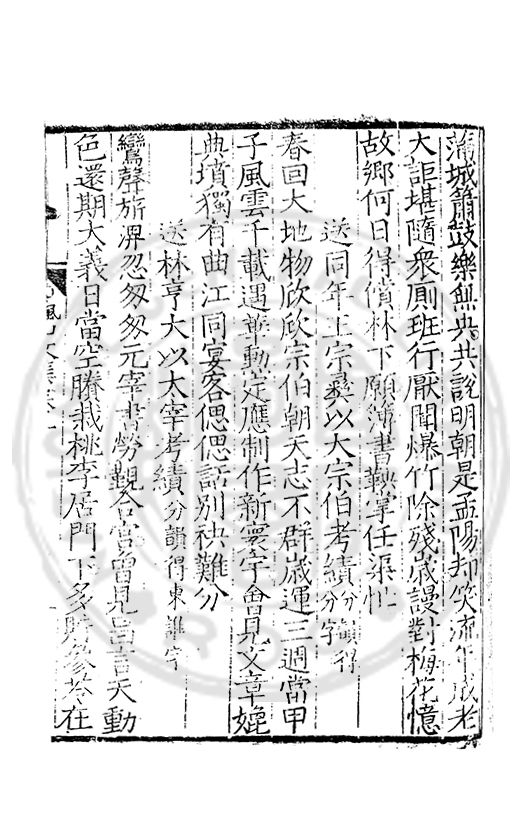 蒲城簫鼓樂無央共說明朝是孟陽却笑流年成老
大詎堪隨衆厠班行厭聞爆竹除殘歲謾對梅花憶
故鄉何日得償林下願簿書鞅掌任渠忙
送同年王宗彝以大宗伯考績分韻得分字
春回大地物欣欣宗伯朝天志不群歲運三週當甲
子風雲千載遇華勳定應制作新寰宇會見文章媲
典墳獨有曲江同宴客偲偲話別袂難分
送林亨大以太宰考績分韻得東誰字
鸞聲旅淠忽匆匆元宰書勞觀合宮曾見昌言天動
色還期大義日當空勝栽桃李居門下多貯參苓在